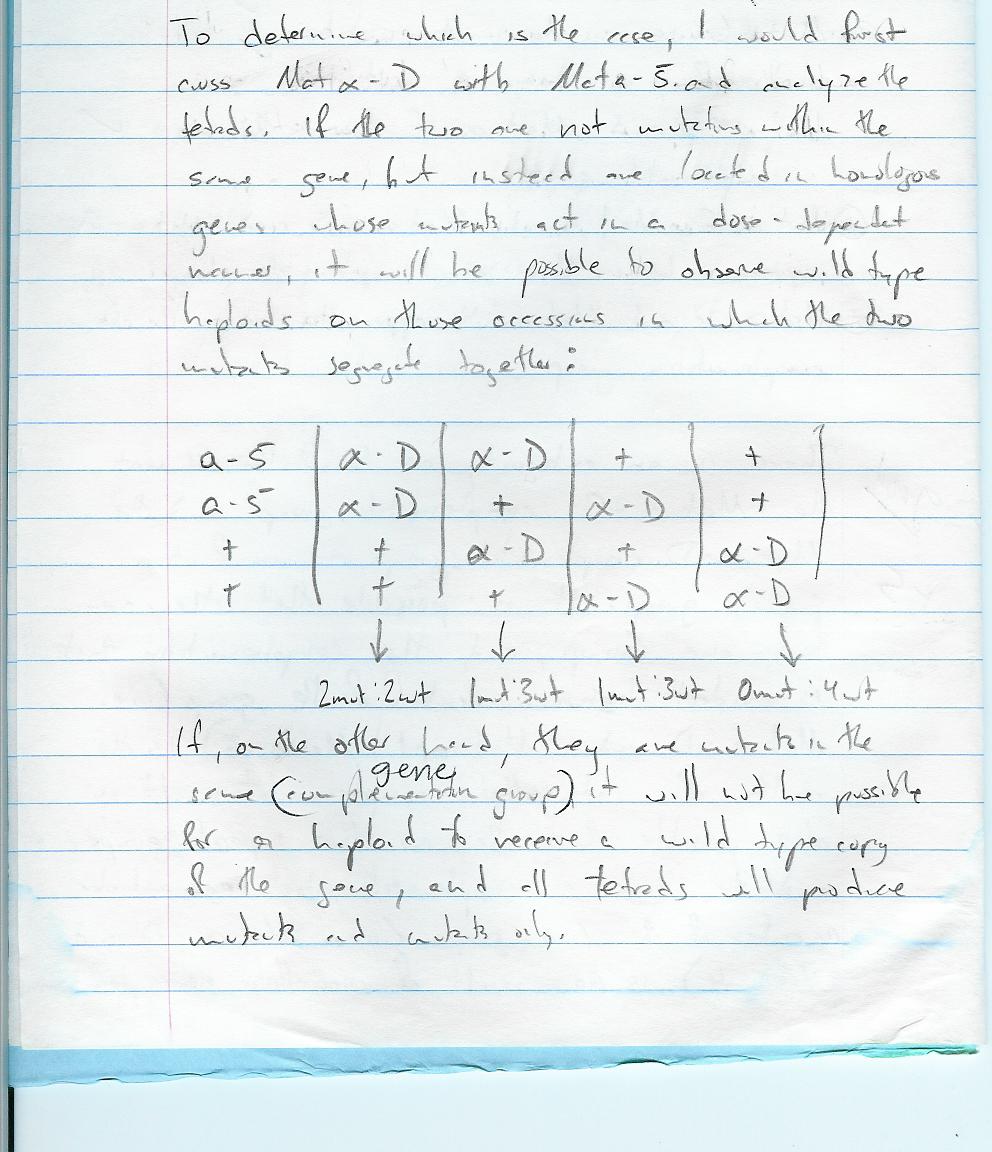 To determine which is the case, I would first
cross Mat α-D with Mat a-5 and analyze the
tetrads. If the two are not mutations within the
same gene, but instead are located in homologous
genes whose mutants act in a dose-dependent
manner, it will be possible to observe wild type
haploids on those occassions in which the two
mutants segregate together:
a-5 | α-D | α-D | + | + |
a-5 | α-D | + | α-D | + |
+ | + | α-D | + | α-D |
+ | + | + | α-D | α-D
↓ ↓ ↓ ↓
2mut:2wt 1mut:3wt 1mut:3wt 0mut:4wt
If, on the other hand, they are mutants in the
gene
same (complementation group) it will not be possible
for a haploid to receive a wild type copy
of the gene, and all tetrads will produce
mutants and mutants only.